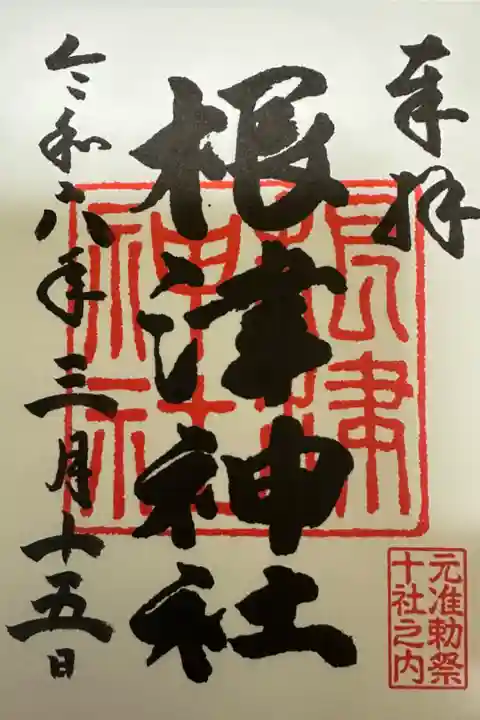 奉拝
根津神社
根津
神社
令和六年三月十五日
元准勅祭
十社之内